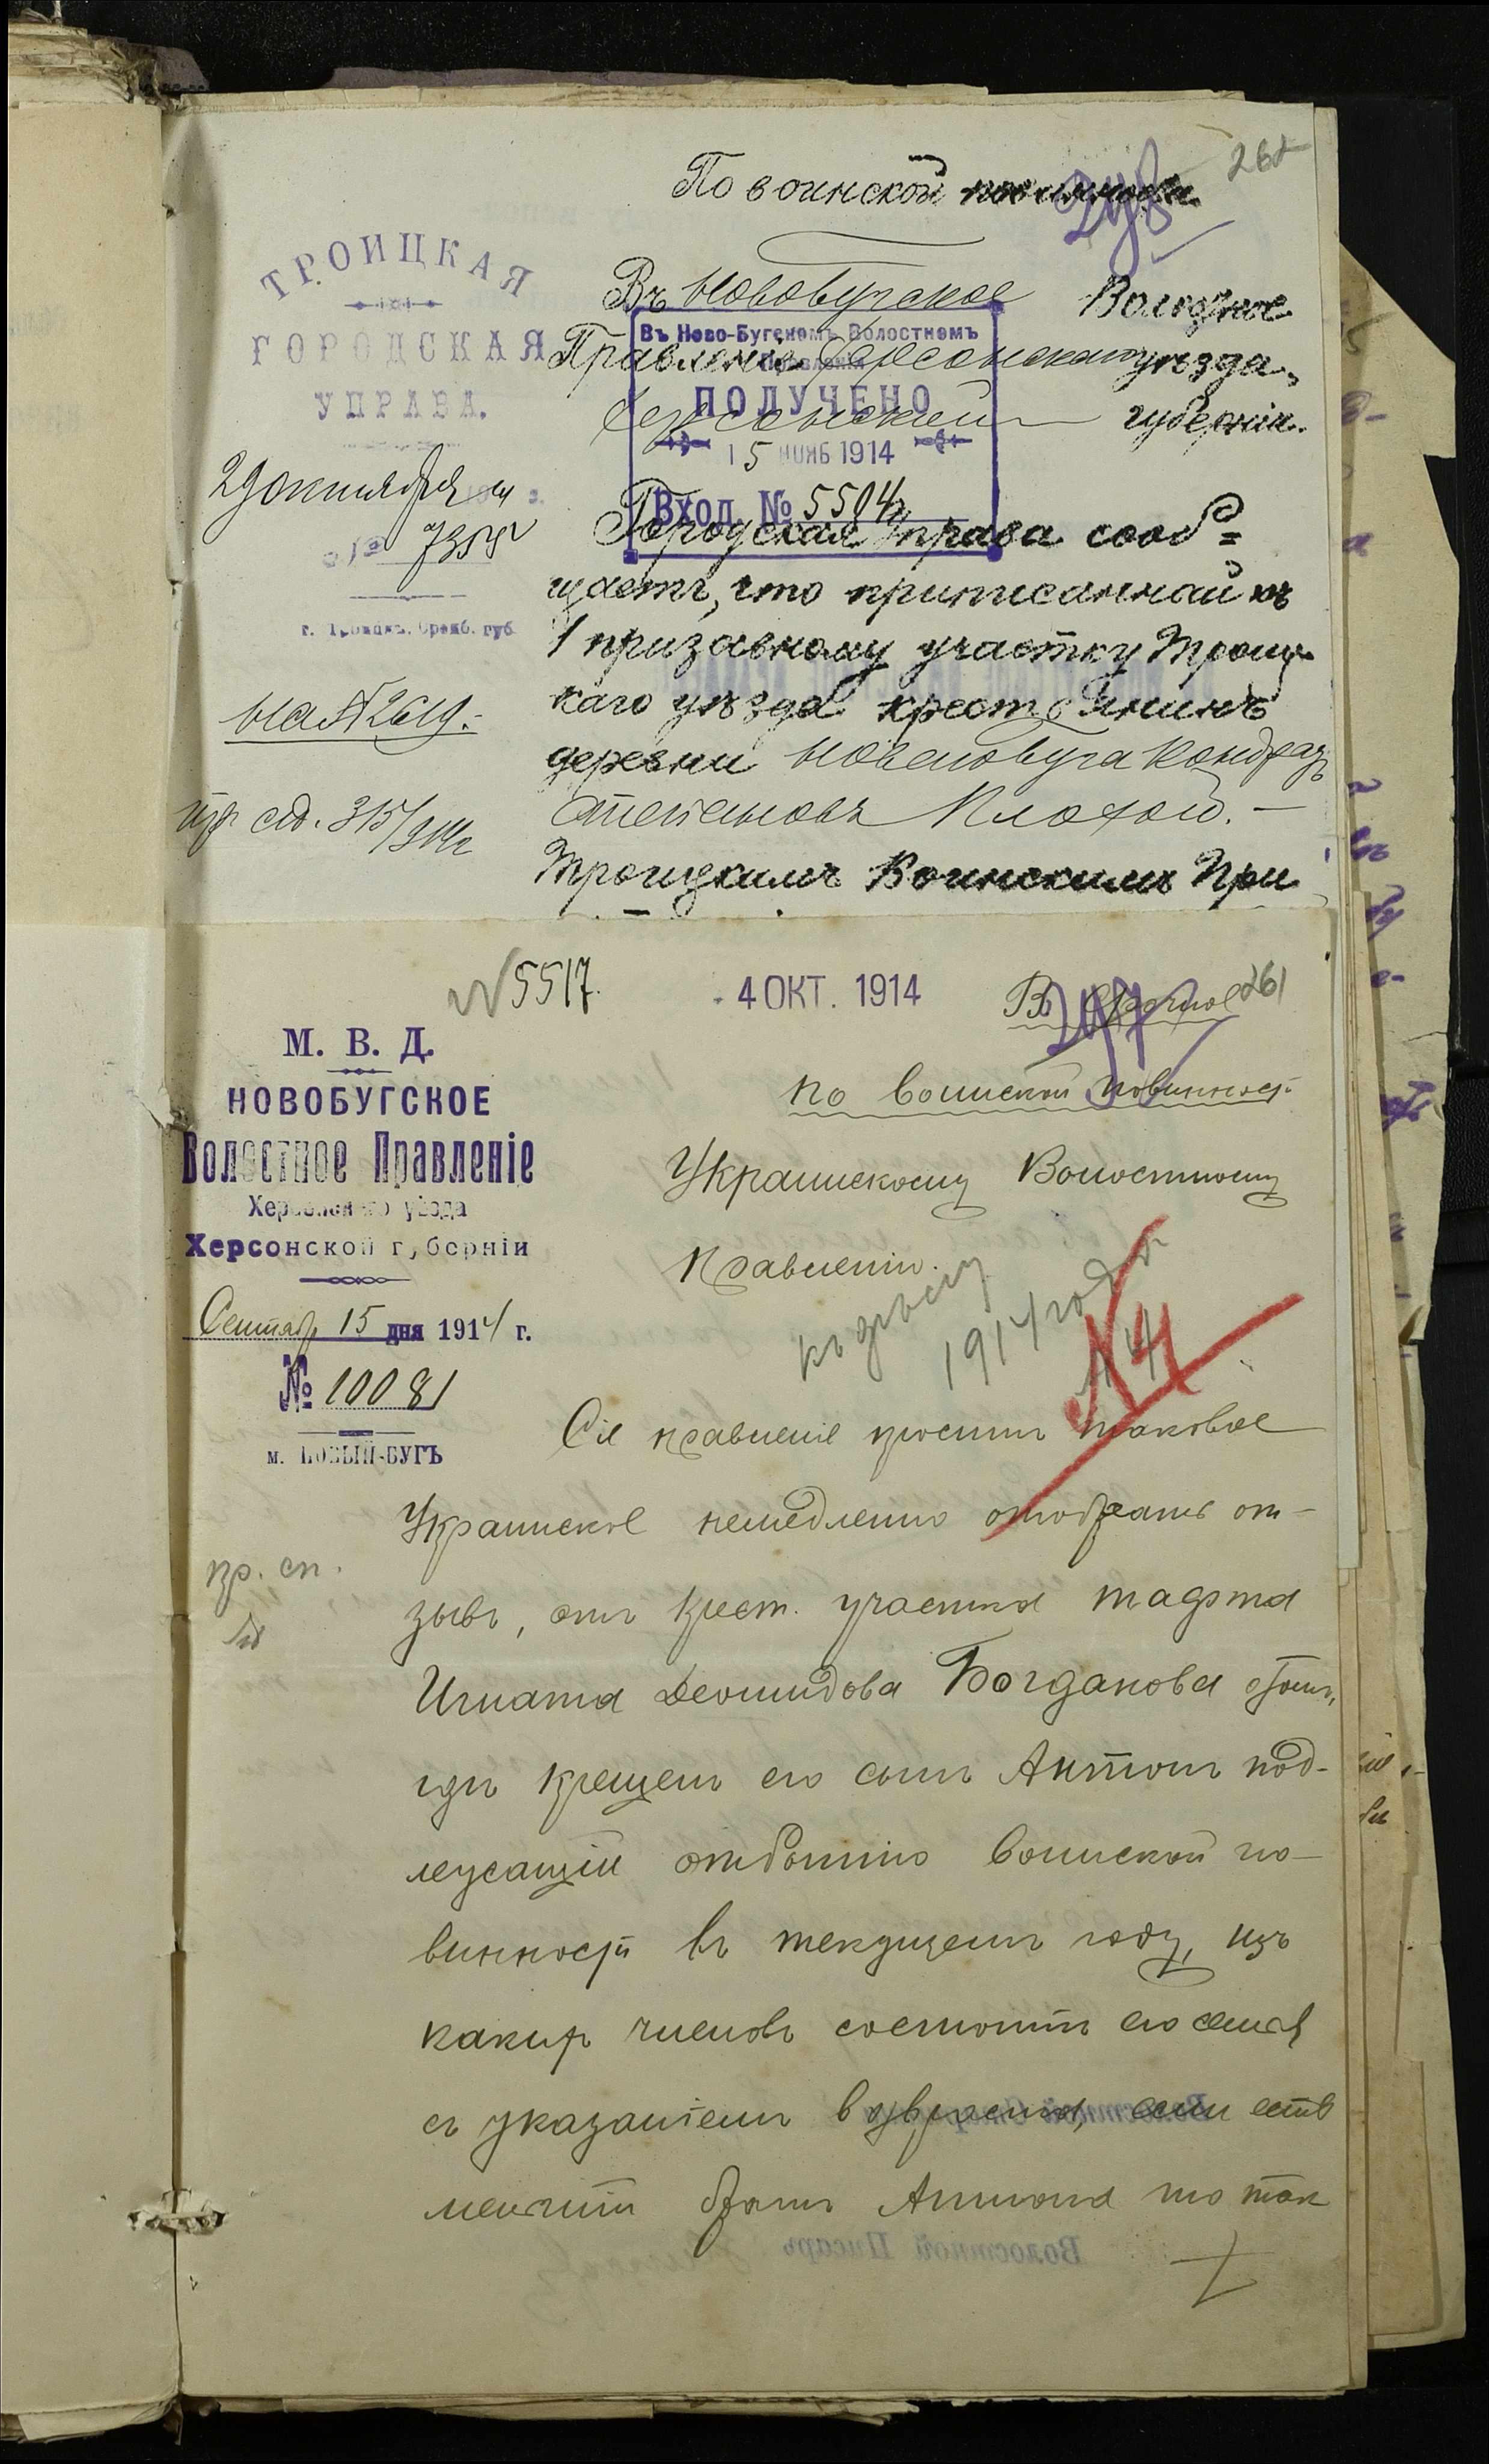 262
По воинской повинности.
248
ТРОИЦКАЯ
ГОРОДСКАЯ
УПРАВА.
29 октября
№ 7358
г. Троицкъ. Оренб. губ.
на № 2619.
Въ Новобугское Волостное
Правленіе Херсонскаго уѣзда,
Херсонской губерніи.
Въ Ново-Бугскомъ Волостномъ
Правленіи
ПОЛУЧЕНО
15 НОЯБ 1914
Вход. № 5504
Городская управа сооб=
щаетъ, что приписанный къ
1 призывному участку Троиц-
каго уѣзда крестьянинъ
деревни Новаго Буга Кондратъ
Степановъ Плохой. —
Троицкимъ Воинскимъ При
пр. сп. 315/914 г
№ 5517.
4 ОКТ. 1914
261
Въ Срочное
247
по воинской повинности
М. В. Д.
НОВОБУГСКОЕ
Волостное Правленіе
Херсонскаго уѣзда
Херсонской губерніи
Сентяб 15 дня 1914 г.
№ 10081
м. НОВЫЙ-БУГЪ
Украинскому Волостному
Правленію.
къ дѣлу
1914 года
№ 4
Сіе правленіе проситъ таковое
Украинское немедленно отобрать от-
зывъ, отъ крест. участка
Игната Деомидова Богданова
гдѣ крещенъ его сынъ Антонъ под-
лежащій отбытію воинской по-
винности въ текущемъ году, изъ
какихъ членовъ состоитъ его семья
съ указаніемъ возраста, если есть
меньшій братъ Антона то так
пр. сп.
Волостной Старшина
Волостной Писарь